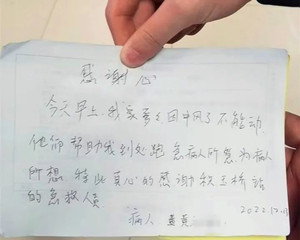 感谢心
今天早上我爱爱因中风了不能动
他们帮助我到处跑急病人所急为病人
所想 特此真心的感谢秋玉桥站
的急救人员
病人 孟
2022.12.